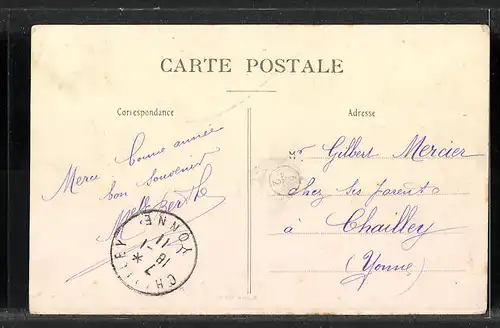 CARTE POSTALE
Correspondance
Adresse
Merci bonne année
bon souvenir
Melle Berthe
Mr Gilbert Mercier
Chez ses parents
à Chailley
(Yonne)
CHAILLEY
YONNE
7
18 -1
11